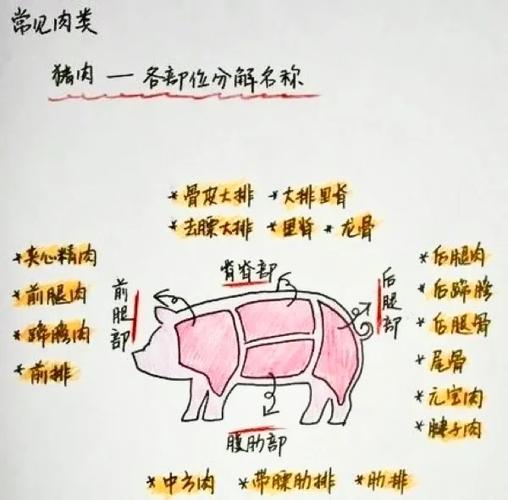 常见肉类
猪肉 — 各部位分解名称
*骨皮大排 *大排里脊
*去膘大排 *里脊 *龙骨
背脊部
*夹心精肉
*前腿肉
*蹄膀肉
*前排
前腿部
后腿部
*后腿肉
*后蹄膀
*后腿骨
*尾骨
*元宝肉
*腱子肉
腹肋部
*中方肉 *带膘肋排 *肋排